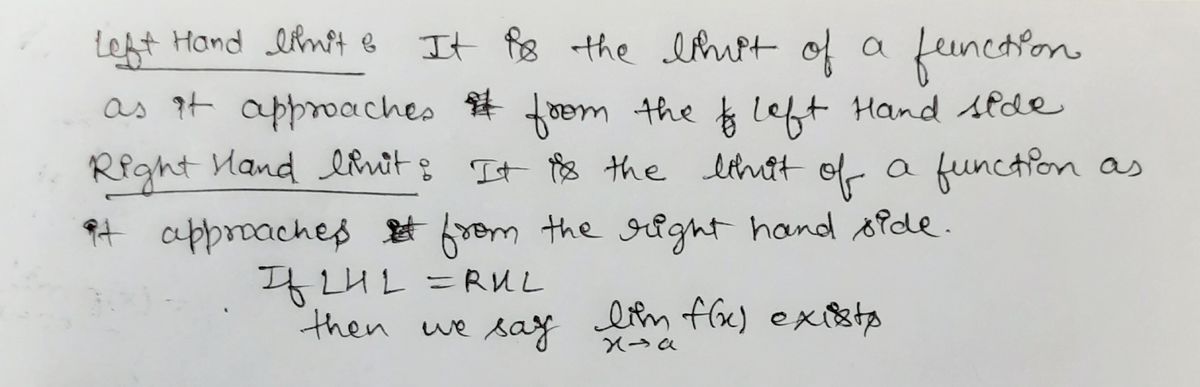 Left Hand limit : It is the limit of a function
as it approaches from the left Hand side
Right Hand limit : It is the limit of a function as
it approaches from the right hand side.
If LHL = RHL
then we say lim f(x) exists
x→a